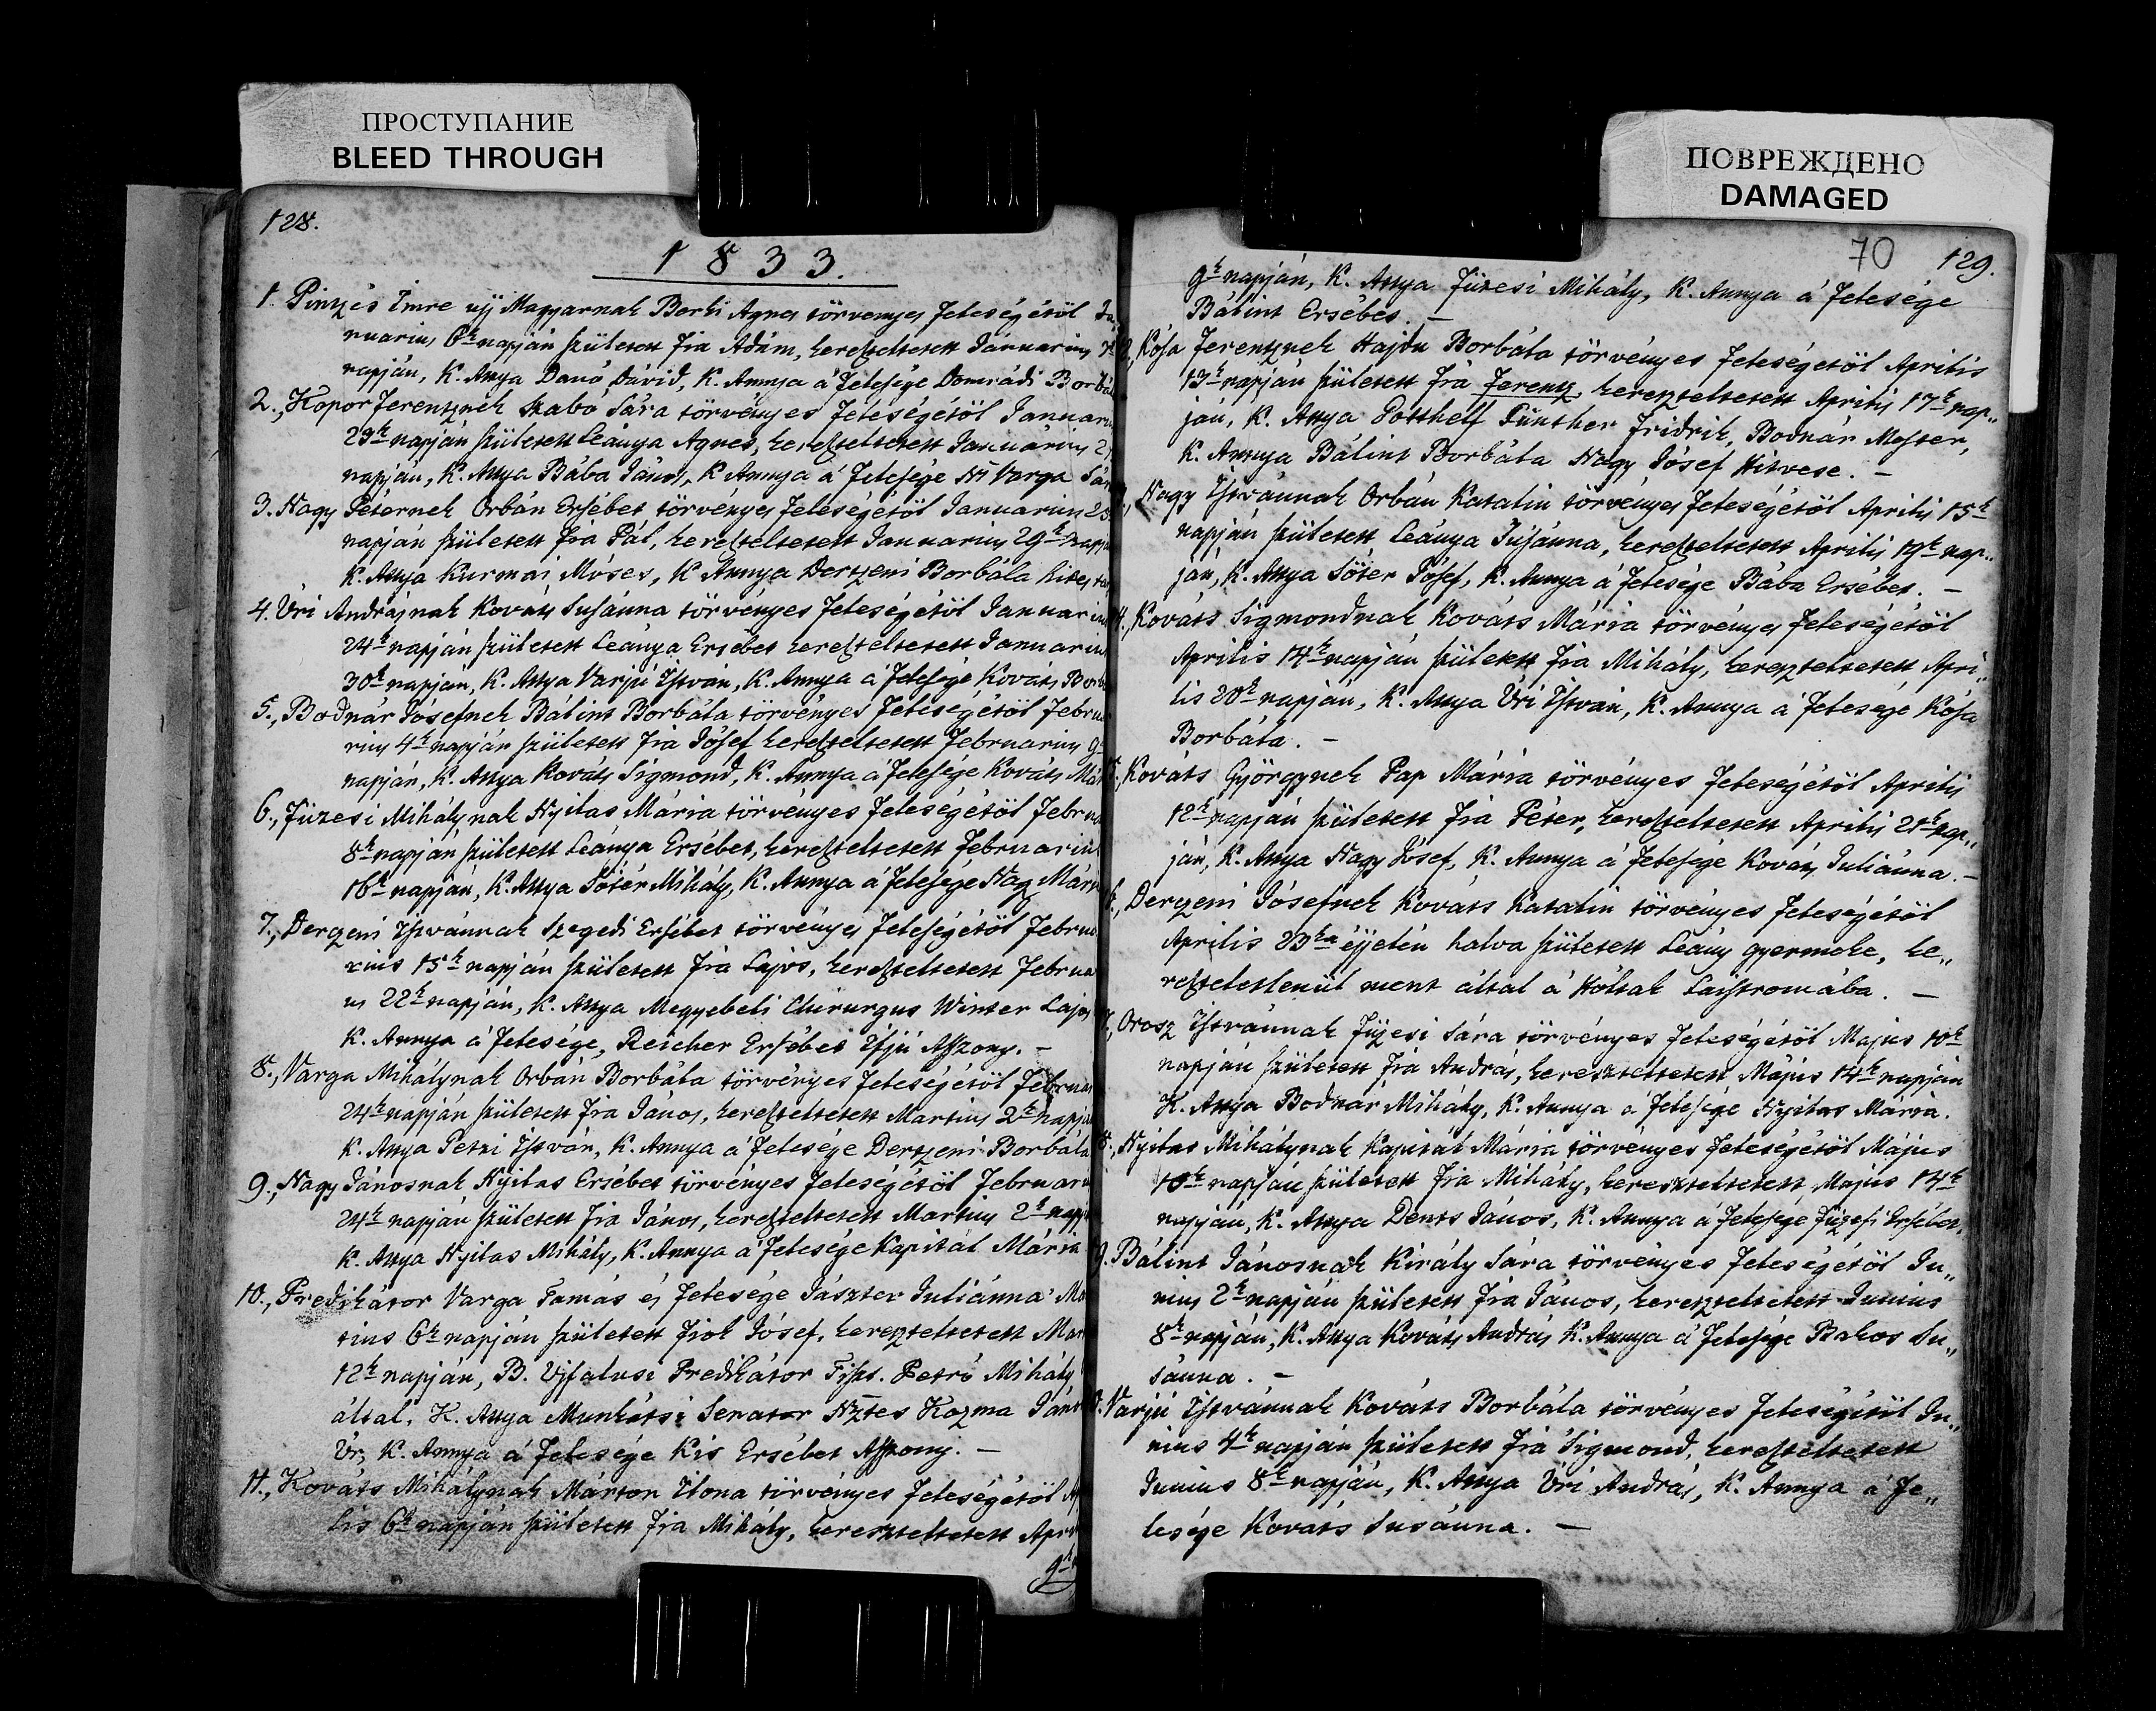 ПРОСТУПАНИЕ
BLEED THROUGH
128.
1833.
1. Pintzés Imre ujj Magyarnak Borhi Agnes törvenyes Feleségétöl
nuarius 6k napján született Fia Adám, kereszteltetett Januarius
napján, K. Attya Danó Dávid, K. Annya á Felesége Domrádi
2., Kopor Ferentznek Szabó Sára törvényes Feleségétöl
23k napján született Leánya Agnes, kereszteltetett Januárius
napján, K. Attya Bába János, K Annya á Felesége N Varga
3. Nagy Péternek Orbán Ersébet törvényes Feleségétöl Januarius
napján született Fia Pál, kereszteltetett Januarius 29k
K. Attya Kurmai Móses, K Annya Dertzeni Borbála
4. Úri Andrásnak Kováts Susánna törvényes Feleségétöl
24k napján született Leánya Ersebet kereszteltetett
30k napján, K. Attya Varjú István, K. Annya á Felesége Kováts
5., Bodnár Jósefnek Bálint Borbála törvényes Feleségétöl
rius 4k napján született Fia Jósef kereszteltetett Februarius
napján, K. Attya Kováts Sigmond, K. Annya á Felesége Kováts
6., Füzesi Mihálynak Nyitas Mária törvényes Feleségétöl
8k napján született Leánya Ersébet, kereszteltetett
16k napján, K. Attya Sótér Mihály, K. Annya á Felesége Nagy
7., Derczeni Istvánnak Szegedi Ersébet törvényes Feleségétöl
rius 15k napján született Fia Lajos, kereszteltetett
us 22k napján, K. Attya Megyebeli Chirurgus Winter Lajos
K. Annya á Felesége, Reicher Ersébet Ifjú Aszszony. –
8., Varga Mihálynak Orbán Borbála törvényes Feleségétöl
24k napján született Fia János, kereszteltetett Martius 2k
K. Attya Petri István, K. Annya á Felesége Dertzeni Borbála
9., Nagy Jánosnak Nyitas Ersébet törvényes Feleségétöl
24k napján született Fia János, kereszteltetett Martius 2k
K. Attya Nyitas Mihály, K. Annya á Felesége Kapitál Mária
10., Predikátor Varga Tamás és Felesége Jászter Juliánna
tius 6k napján született Fiok Jósef, kereszteltetett
12k napján, B. Ujfalusi Predikátor Tiszt. Petró Mihály
által. K. Attya Munkátsi Senator Nztes Kozma
Úr, K. Annya á Felesége Kis Ersébet Aszszony. –
11., Kováts Mihálynak Márton Ilona törvényes Feleségétöl
lis 6k napján született Fia Mihály, kereszteltetett
9k
ПОВРЕЖДЕНО
DAMAGED
70 129.
9k napján, K. Attya Füzesi Mihály, K. Annya á Felesége
Bálint Ersébet. –
Kósa Ferentznek Hajdu Borbála törvényes Feleségétöl Aprilis
13k napján született Fia Ferentz, kereszteltetett Aprilis 17k nap„
ján, K. Attya Gotthelf Günther Fridrik, Bodnár Mester,
K. Annya Bálint Borbála Nagy Jósef Hitvese. –
Nagy Istvánnak Orbán Katalin törvényes Feleségétöl Aprilis 15k
napján született Leánya Susánna, kereszteltetett Aprilis 19k nap„
ján, K. Attya Sótér Jósef, K. Annya á Felesége Bába Ersébet. –
Kováts Sigmondnak Kováts Mária törvényes Feleségétöl
Aprilis 14k napján született Fia Mihály, kereszteltetett Apri„
lis 20k napján, K. Attya Úri István, K. Annya á Felesége Kósa
Borbála. –
Kováts Györgynek Pap Mária törvényes Feleségétöl Aprilis
12k napján született Fia Péter, kereszteltetett Aprilis 21k nap„
ján, K. Attya Nagy Jósef, K. Annya á Felesége Kováts Juliánna. –
Derczeni Jósefnek Kováts Katalin törvényes Feleségétöl
Aprilis 23ka éjjelén halva született Leány gyermeke, ke„
reszteletlenül ment által á Hóltak Laistromába. –
Orosz Istvánnak Füzesi Sára törvényes Feleségétöl Majus 10k
napján született Fia András, kereszteltetett Május 14k napján
K. Attya Bodnár Mihály, K. Annya á Felesége Nyitas Mária.
Nyitas Mihálynak Kapitál Mária törvényes Feleségétöl Május
10k napján született Fia Mihály, kereszteltetett Majus 14k
napján, K. Attya Dents János, K. Annya á Felesége Füzesi Ersébet,
Bálint Jánosnak Király Sára törvényes Feleségétöl Ju„
nius 2k napján született Fia János, kereszteltetett Junius
8k napján, K. Attya Kováts András K. Annya á Felesége Bakos Su„
sánna. –
Varjú Istvánnak Kováts Borbála törvényes Feleségétöl Ju„
nius 4k napján született Fia Sigmond, kereszteltetett
Junius 8k napján, K. Attya Úri András, K. Annya á Fe„
lesége Kováts Susánna. –